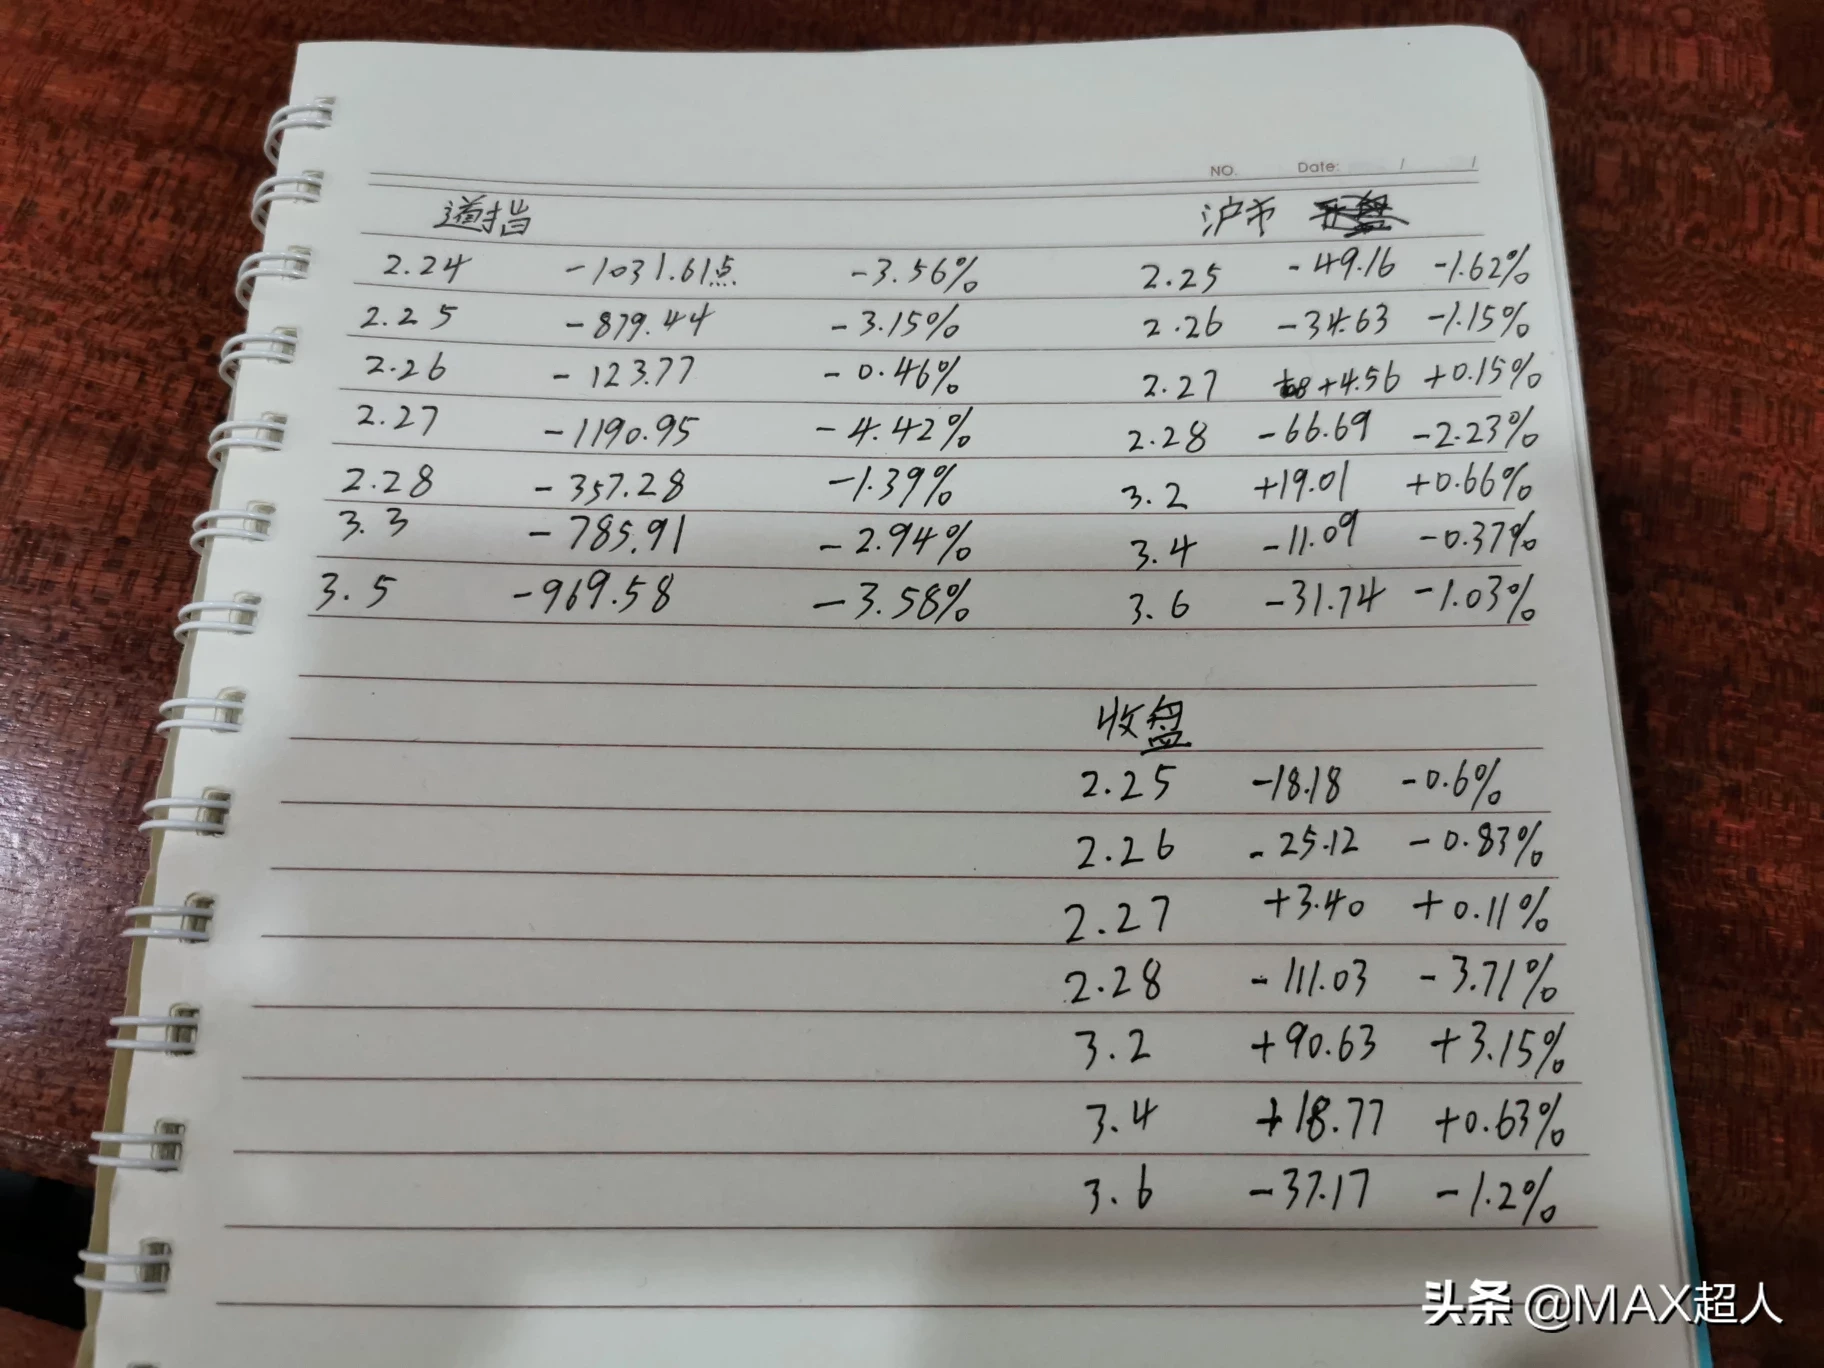 NO. Date: / /
道指 沪市
2.24 -1031.61点 -3.56% 2.25 -49.16 -1.62%
2.25 -879.44 -3.15% 2.26 -34.63 -1.15%
2.26 -123.77 -0.46% 2.27 +4.56 +0.15%
2.27 -1190.95 -4.42% 2.28 -66.69 -2.23%
2.28 -357.28 -1.39% 3.2 +19.01 +0.66%
3.3 -785.91 -2.94% 3.4 -11.09 -0.37%
3.5 -969.58 -3.58% 3.6 -31.74 -1.03%
收盘
2.25 -18.18 -0.6%
2.26 -25.12 -0.83%
2.27 +3.40 +0.11%
2.28 -111.03 -3.71%
3.2 +90.63 +3.15%
3.4 +18.77 +0.63%
3.6 -37.17 -1.2%
头条 @MAX超人